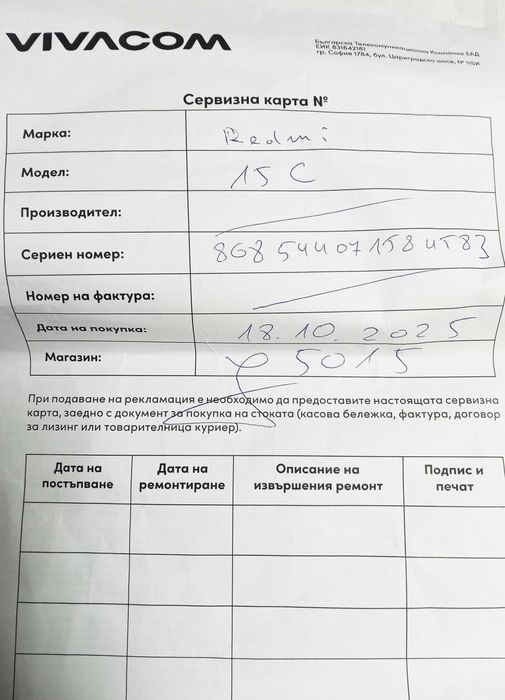 VIVACOM
Българска Телекомуникационна Компания ЕАД
ЕИК 831642181
гр. София 1784, бул. Цариградско шосе, № 115И
Сервизна карта №
Марка: Redmi
Модел: 15 C
Производител:
Сериен номер: 868544071584583
Номер на фактура:
Дата на покупка: 18.10.2025
Магазин: 5015
При подаване на рекламация е необходимо да предоставите настоящата сервизна
карта, заедно с документ за покупка на стоката (касова бележка, фактура, договор
за лизинг или товарителница куриер).
Дата на постъпване Дата на ремонтиране Описание на извършения ремонт Подпис и печат